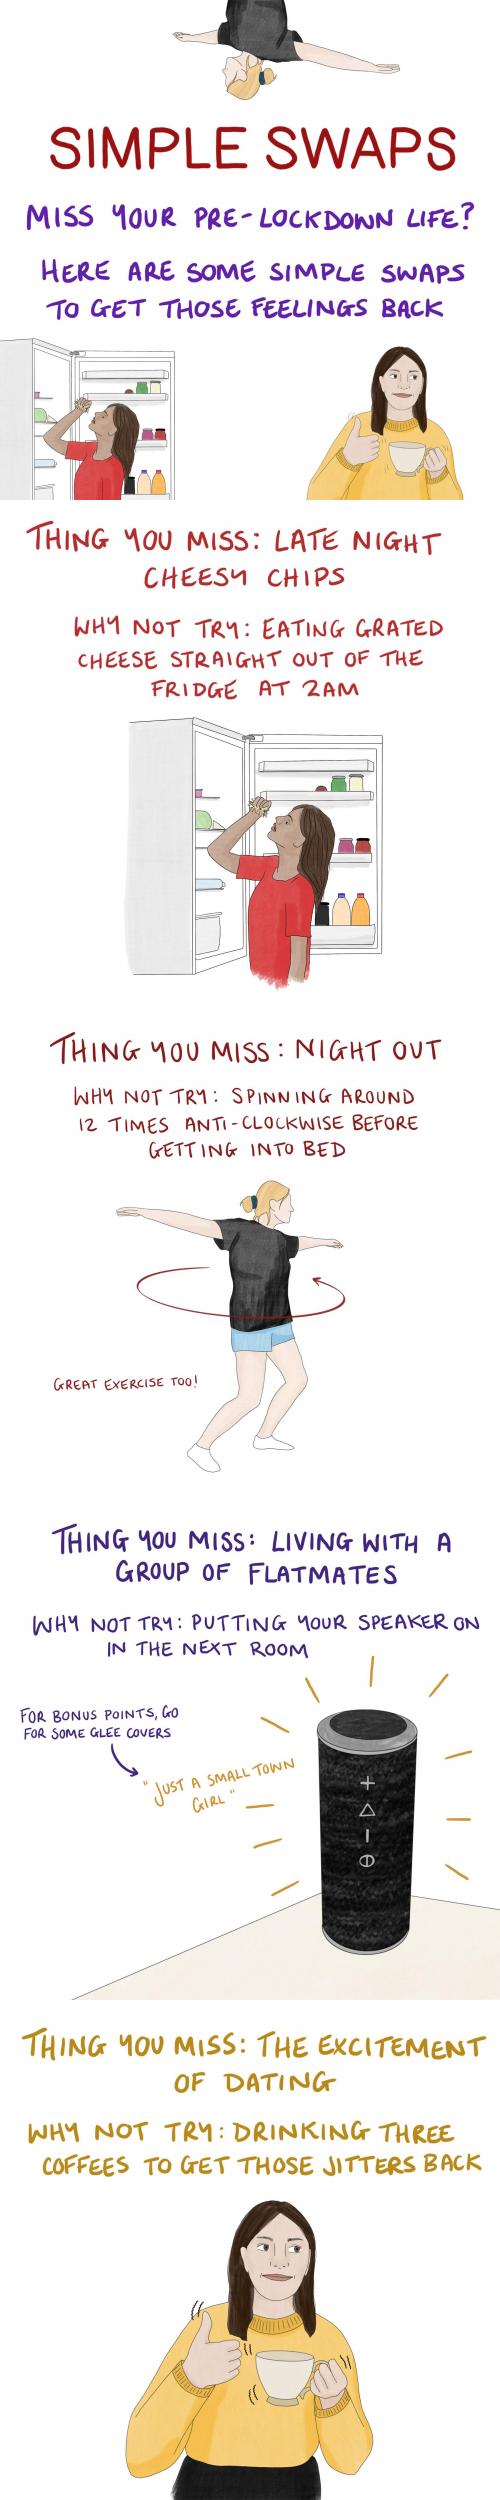 SIMPLE SWAPS
MISS YOUR PRE-LOCKDOWN LIFE?
HERE ARE SOME SIMPLE SWAPS
TO GET THOSE FEELINGS BACK
THING YOU MISS: LATE NIGHT
CHEESY CHIPS
WHY NOT TRY: EATING GRATED
CHEESE STRAIGHT OUT OF THE
FRIDGE AT 2AM
THING YOU MISS: NIGHT OUT
WHY NOT TRY: SPINNING AROUND
12 TIMES ANTI-CLOCKWISE BEFORE
GETTING INTO BED
GREAT EXERCISE TOO!
THING YOU MISS: LIVING WITH A
GROUP OF FLATMATES
WHY NOT TRY: PUTTING YOUR SPEAKER ON
IN THE NEXT ROOM
FOR BONUS POINTS, GO
FOR SOME GLEE COVERS
"JUST A SMALL TOWN
GIRL"
THING YOU MISS: THE EXCITEMENT
OF DATING
WHY NOT TRY: DRINKING THREE
COFFEES TO GET THOSE JITTERS BACK